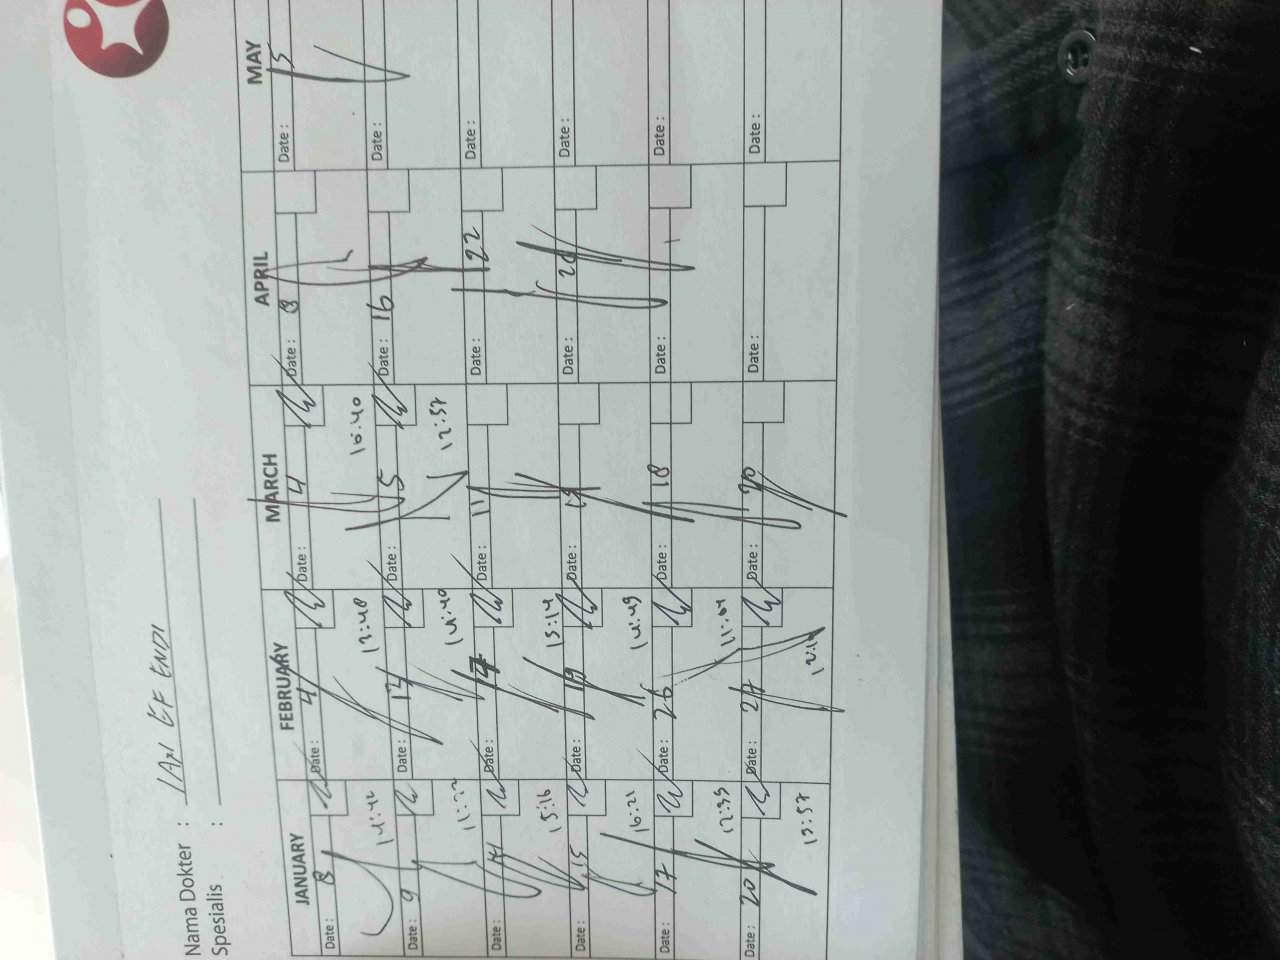 Nama Dokter :
Spesialis :
JANUARY FEBRUARY MARCH APRIL MAY
Date : 8 Date : 4 Date : 4 Date : 8 Date : 5
14:42 13:48 16:40
Date : 9 Date : Date : 5 Date : 16 Date :
11:22 14:40 12:57
Date : 14 Date : Date : 11 Date : 22 Date :
15:16 15:14
Date : 15 Date : 19 Date : Date : Date :
16:21 14:49
Date : 17 Date : 26 Date : 18 Date : Date :
12:39 11:04
Date : 20 Date : 27 Date : 20 Date : Date :
13:57